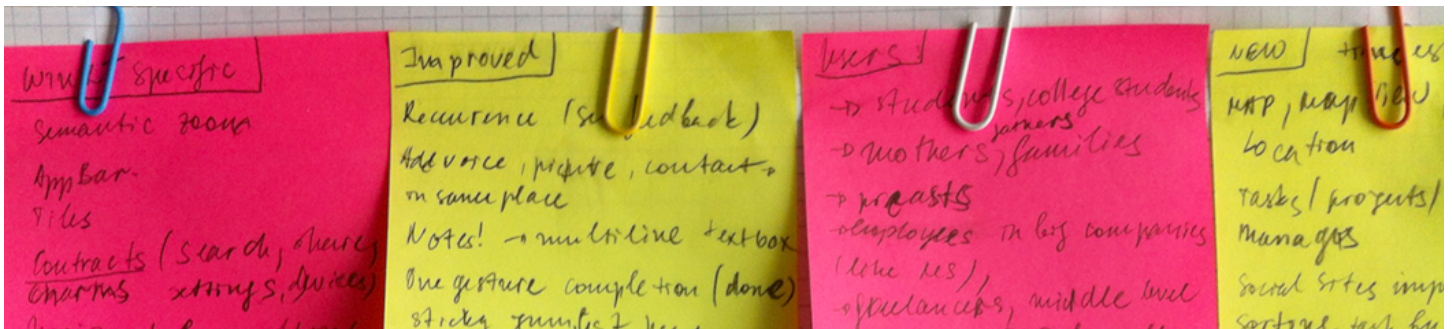 Specific
Semantic zoom
AppBar.
Tiles
Contracts (Search, share,
Charms settings, devices)
Improved
Recurrence (
Add voice, picture, contact →
on same place
Notes! → multiline textbox
One gesture completion (done)
Users:
→ students, college students
fathers
→ mothers, families
→
→ employees in big companies
(like us),
→ freelancers, middle level
NEW
MAP, Map
Location
Tasks / projects /
Social Sites